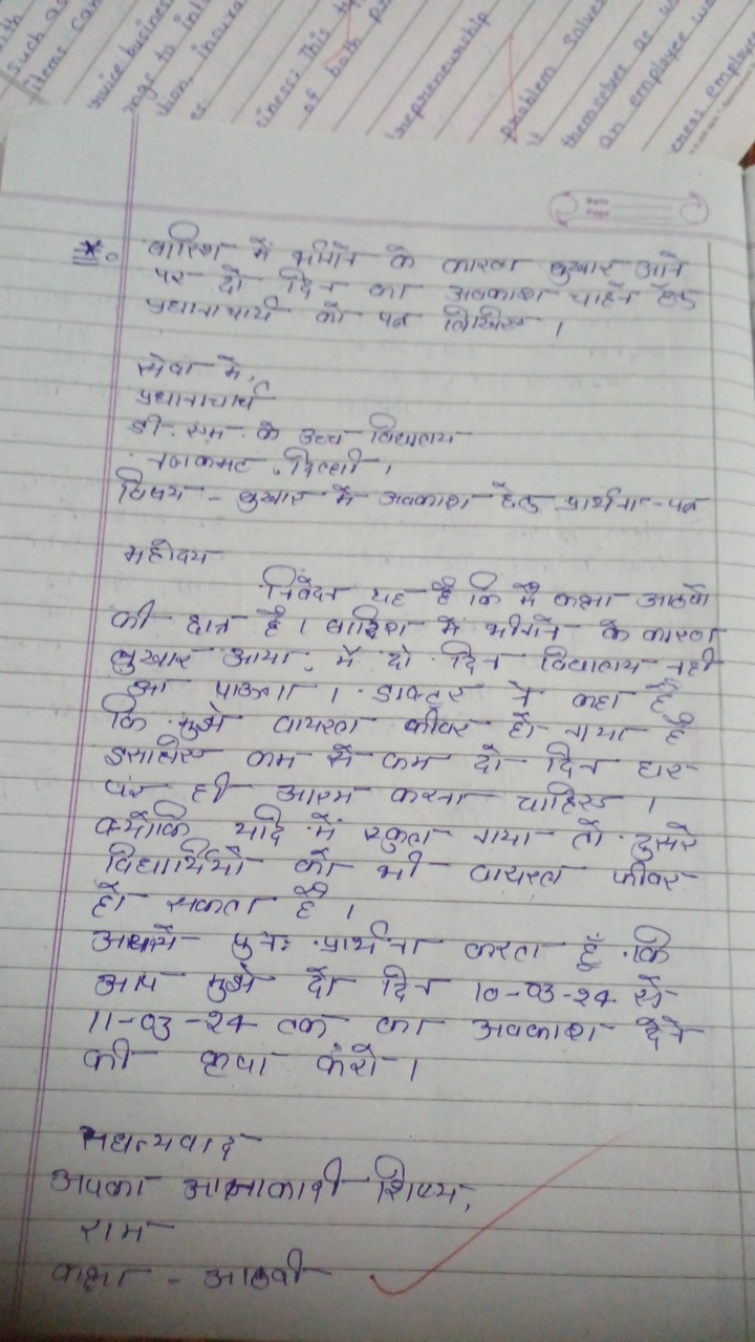 such as
items can
service business
ings to
tion, insura
ciness: This
of both
Entrepreneurship
problem solve
themselves as
an employee
ereas employee
Date
Page
* बारिश में भीगने के कारण बुखार आने
पर दो दिन का अवकाश चाहने हेतु
प्रधानाचार्य को पत्र लिखिए ।
सेवा में,
प्रधानाचार्य
डी. एम. के उच्च विद्यालय
दिल्ली ।
विषय - बुखार में अवकाश हेतु प्रार्थना-पत्र
महोदय
निवेदन यह है कि मैं कक्षा आठवी
की छात्र है । बारिश में भीगने के कारण
बुखार आया, में दो दिन विद्यालय नही
आ पाऊगा । डाक्टर ने कहा है
कि मुझे वायरल फीवर हो गया है
इसलिए कम से कम दो दिन घर
पर ही आरम करना चाहिए ।
क्योंकि यदि में स्कुल गया तो दुसरे
विद्यार्थियो को भी वायरल फीवर
हो सकता है ।
पुनः प्रार्थना करता हूँ कि
आप मुझे दो दिन 10-03-24 से
11-03-24 तक का अवकाश देने
की कृपा करे ।
सधन्यवाद
अपका आज्ञाकारी शिष्य,
राम
कक्षा - आठवी